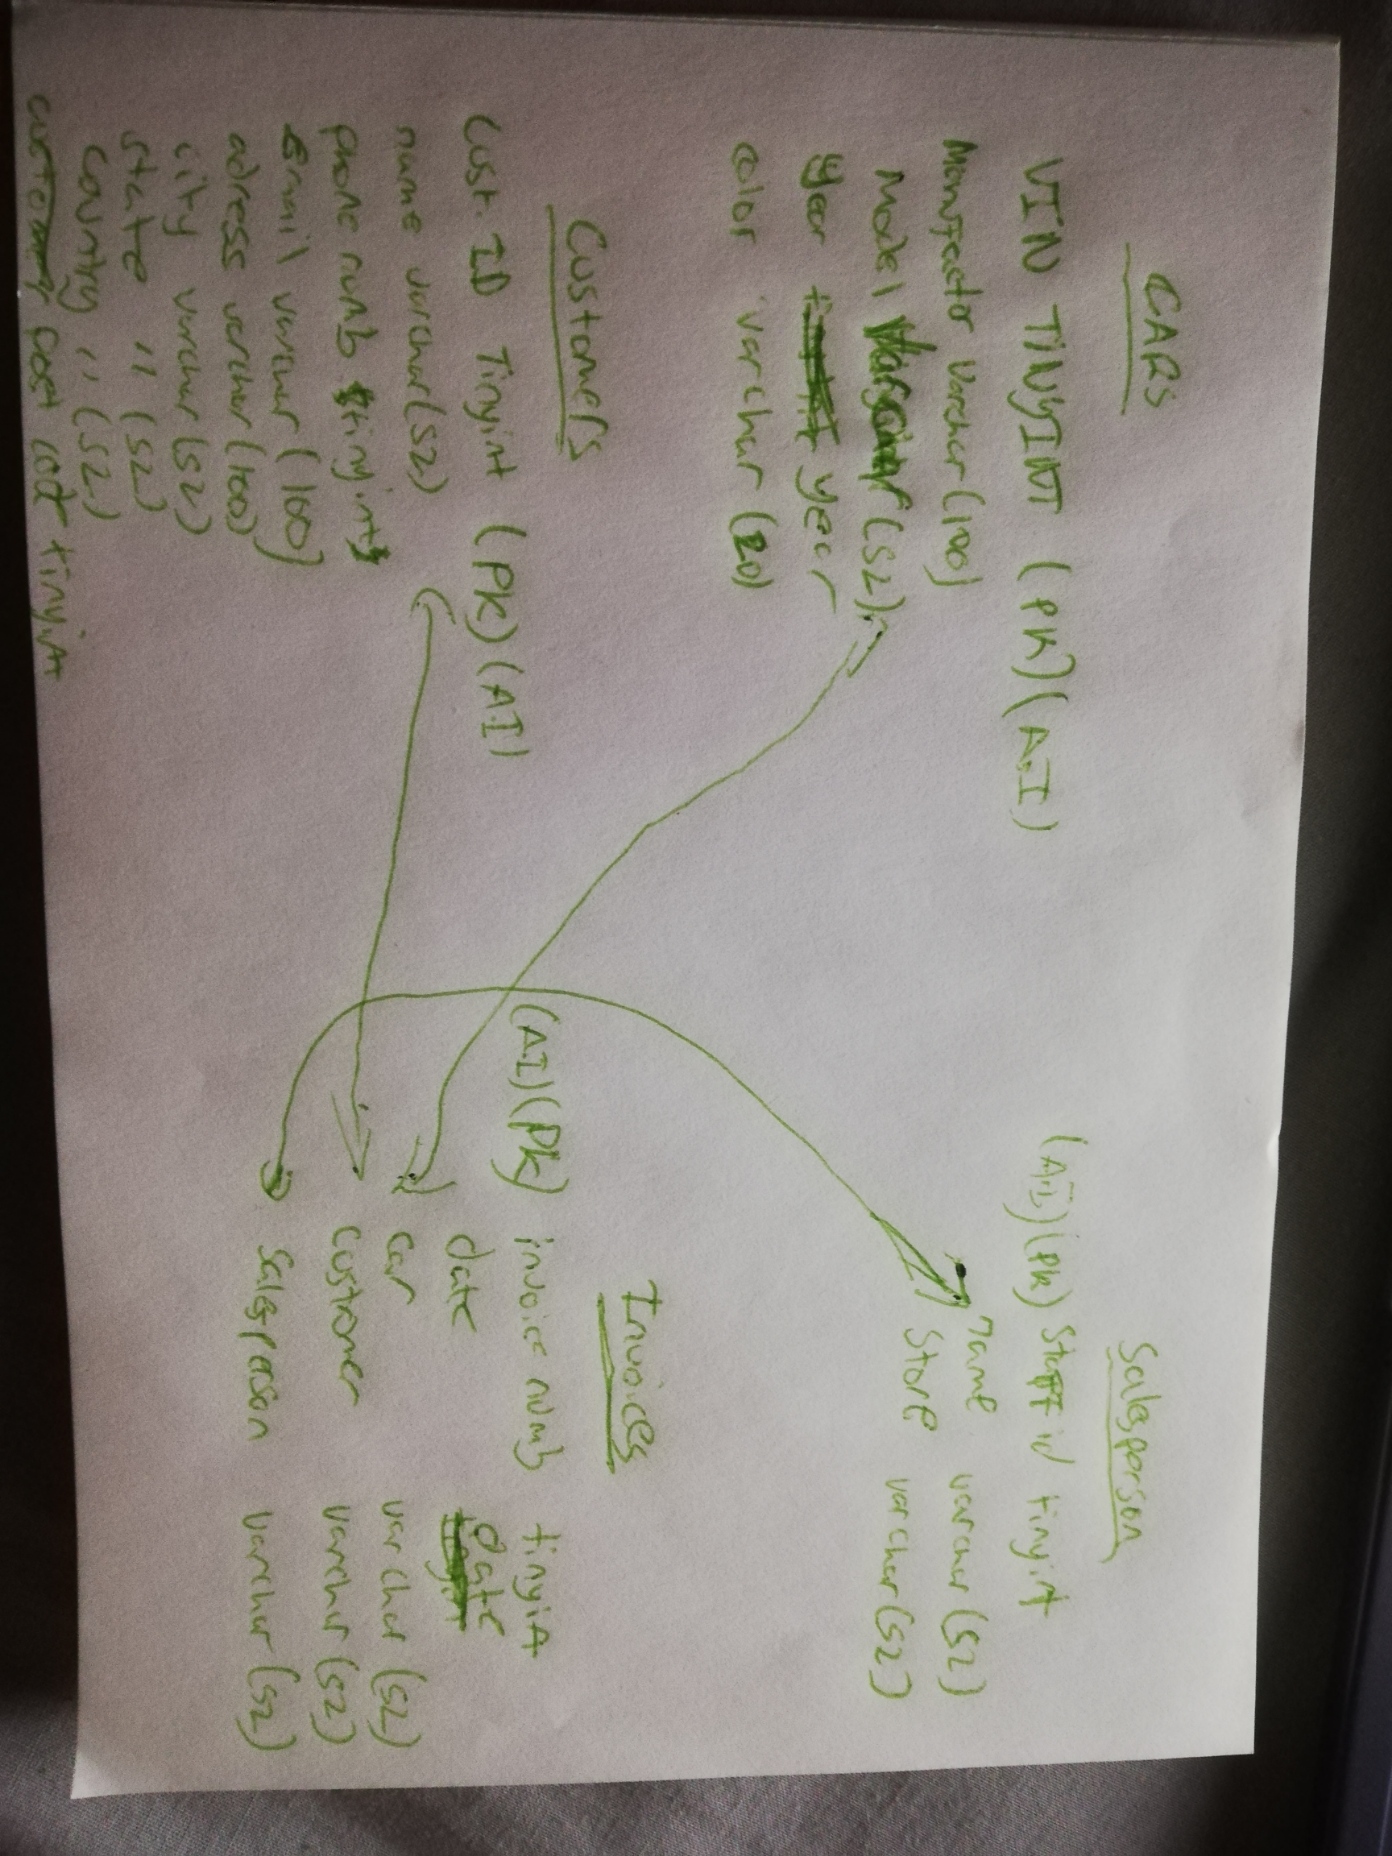 CARS
VIN TINYINT (PK) (A.I)
Manufactor Varchar(100)
Model (52)
year year
color varchar (20)
Customers
Cust. ID Tinyint (PK) (A.I)
name varchar(52)
phone numb tinyint
Email varchar (100)
adress varchar (100)
city varchar (52)
state " (52)
Country " (52)
post code tinyint
Salesperson
(A.I) (PK) Staff id tinyint
name varchar (52)
Store varchar (52)
Invoices
(A.I) (PK) invoice numb tinyint
date date
car varchar (52)
customer varchar (52)
Salesperson varchar (52)